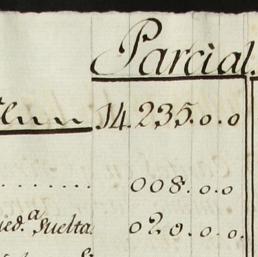 Parcial.
14.235.0.0
008.0.0
ied.ª Suelta 020.0.0.